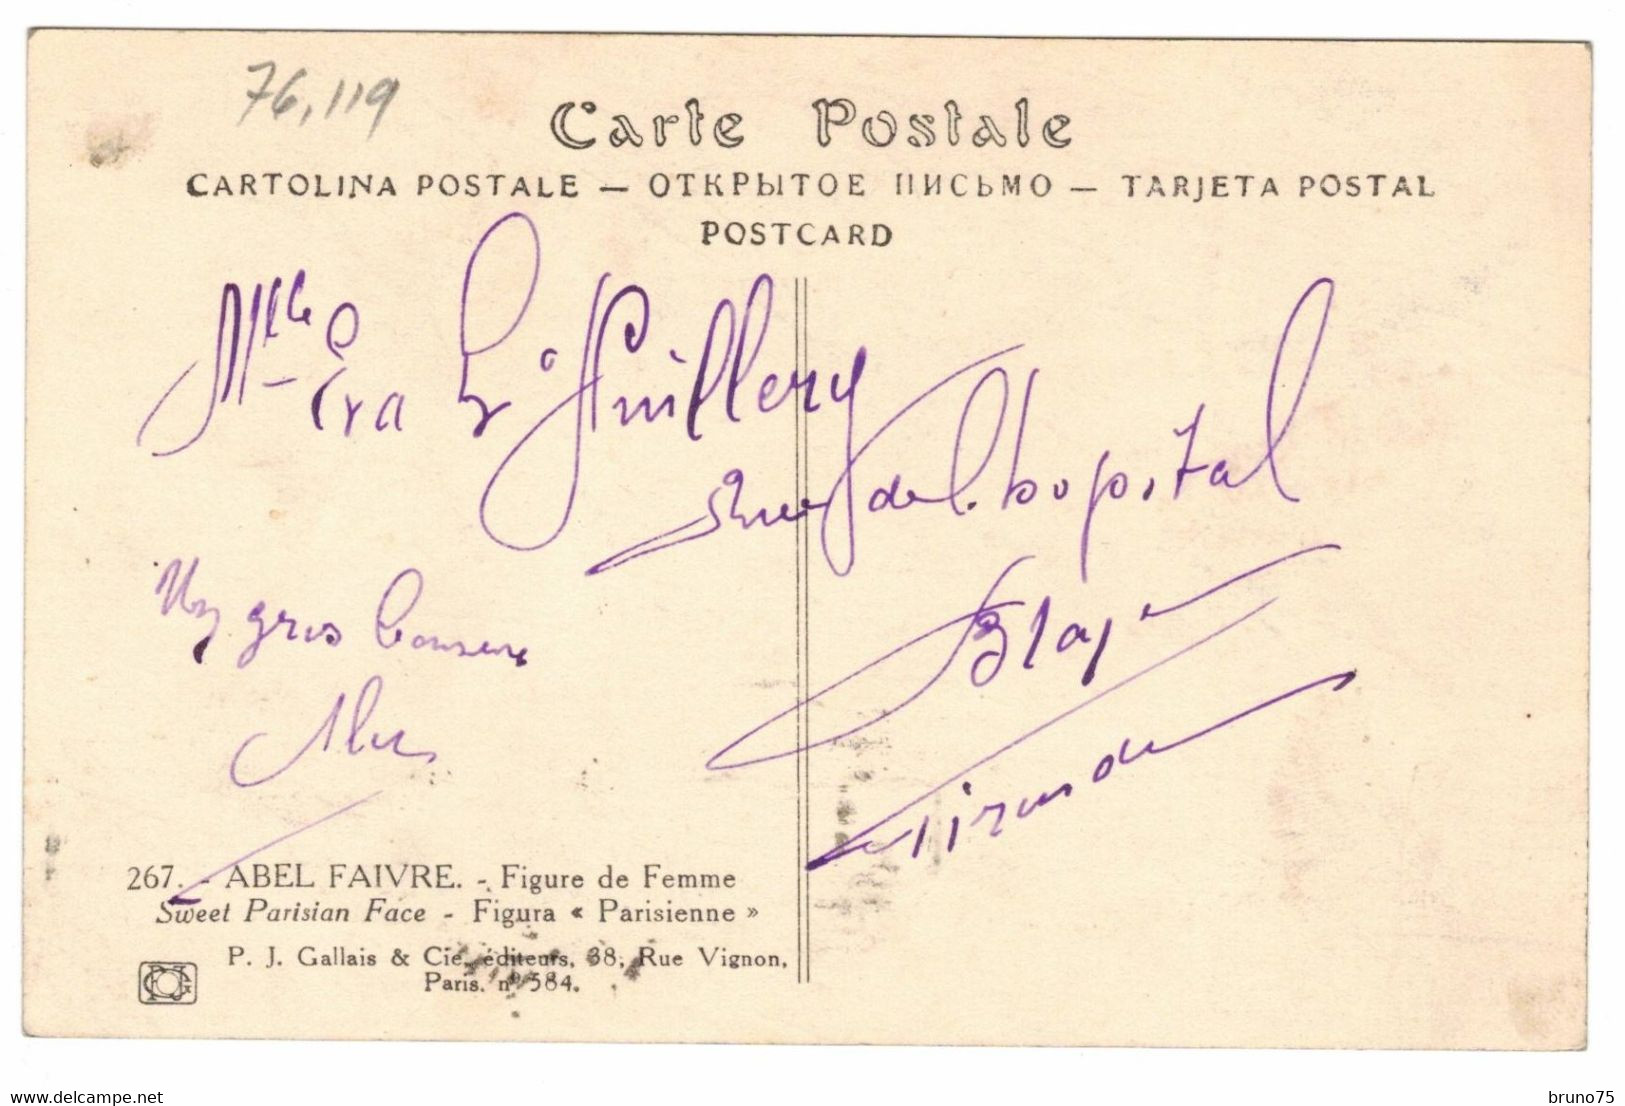 76,119
Carte Postale
CARTOLINA POSTALE — ОТКРЫТОЕ ПИСЬМО — TARJETA POSTAL
POSTCARD
Mlle Eva Guillery
Rue de l'hopital
Blaye
Gironde
gros
267. - ABEL FAIVRE. - Figure de Femme
Sweet Parisian Face - Figura « Parisienne »
P. J. Gallais & Cie, éditeurs, 38, Rue Vignon,
Paris. nº 584.
bruno75